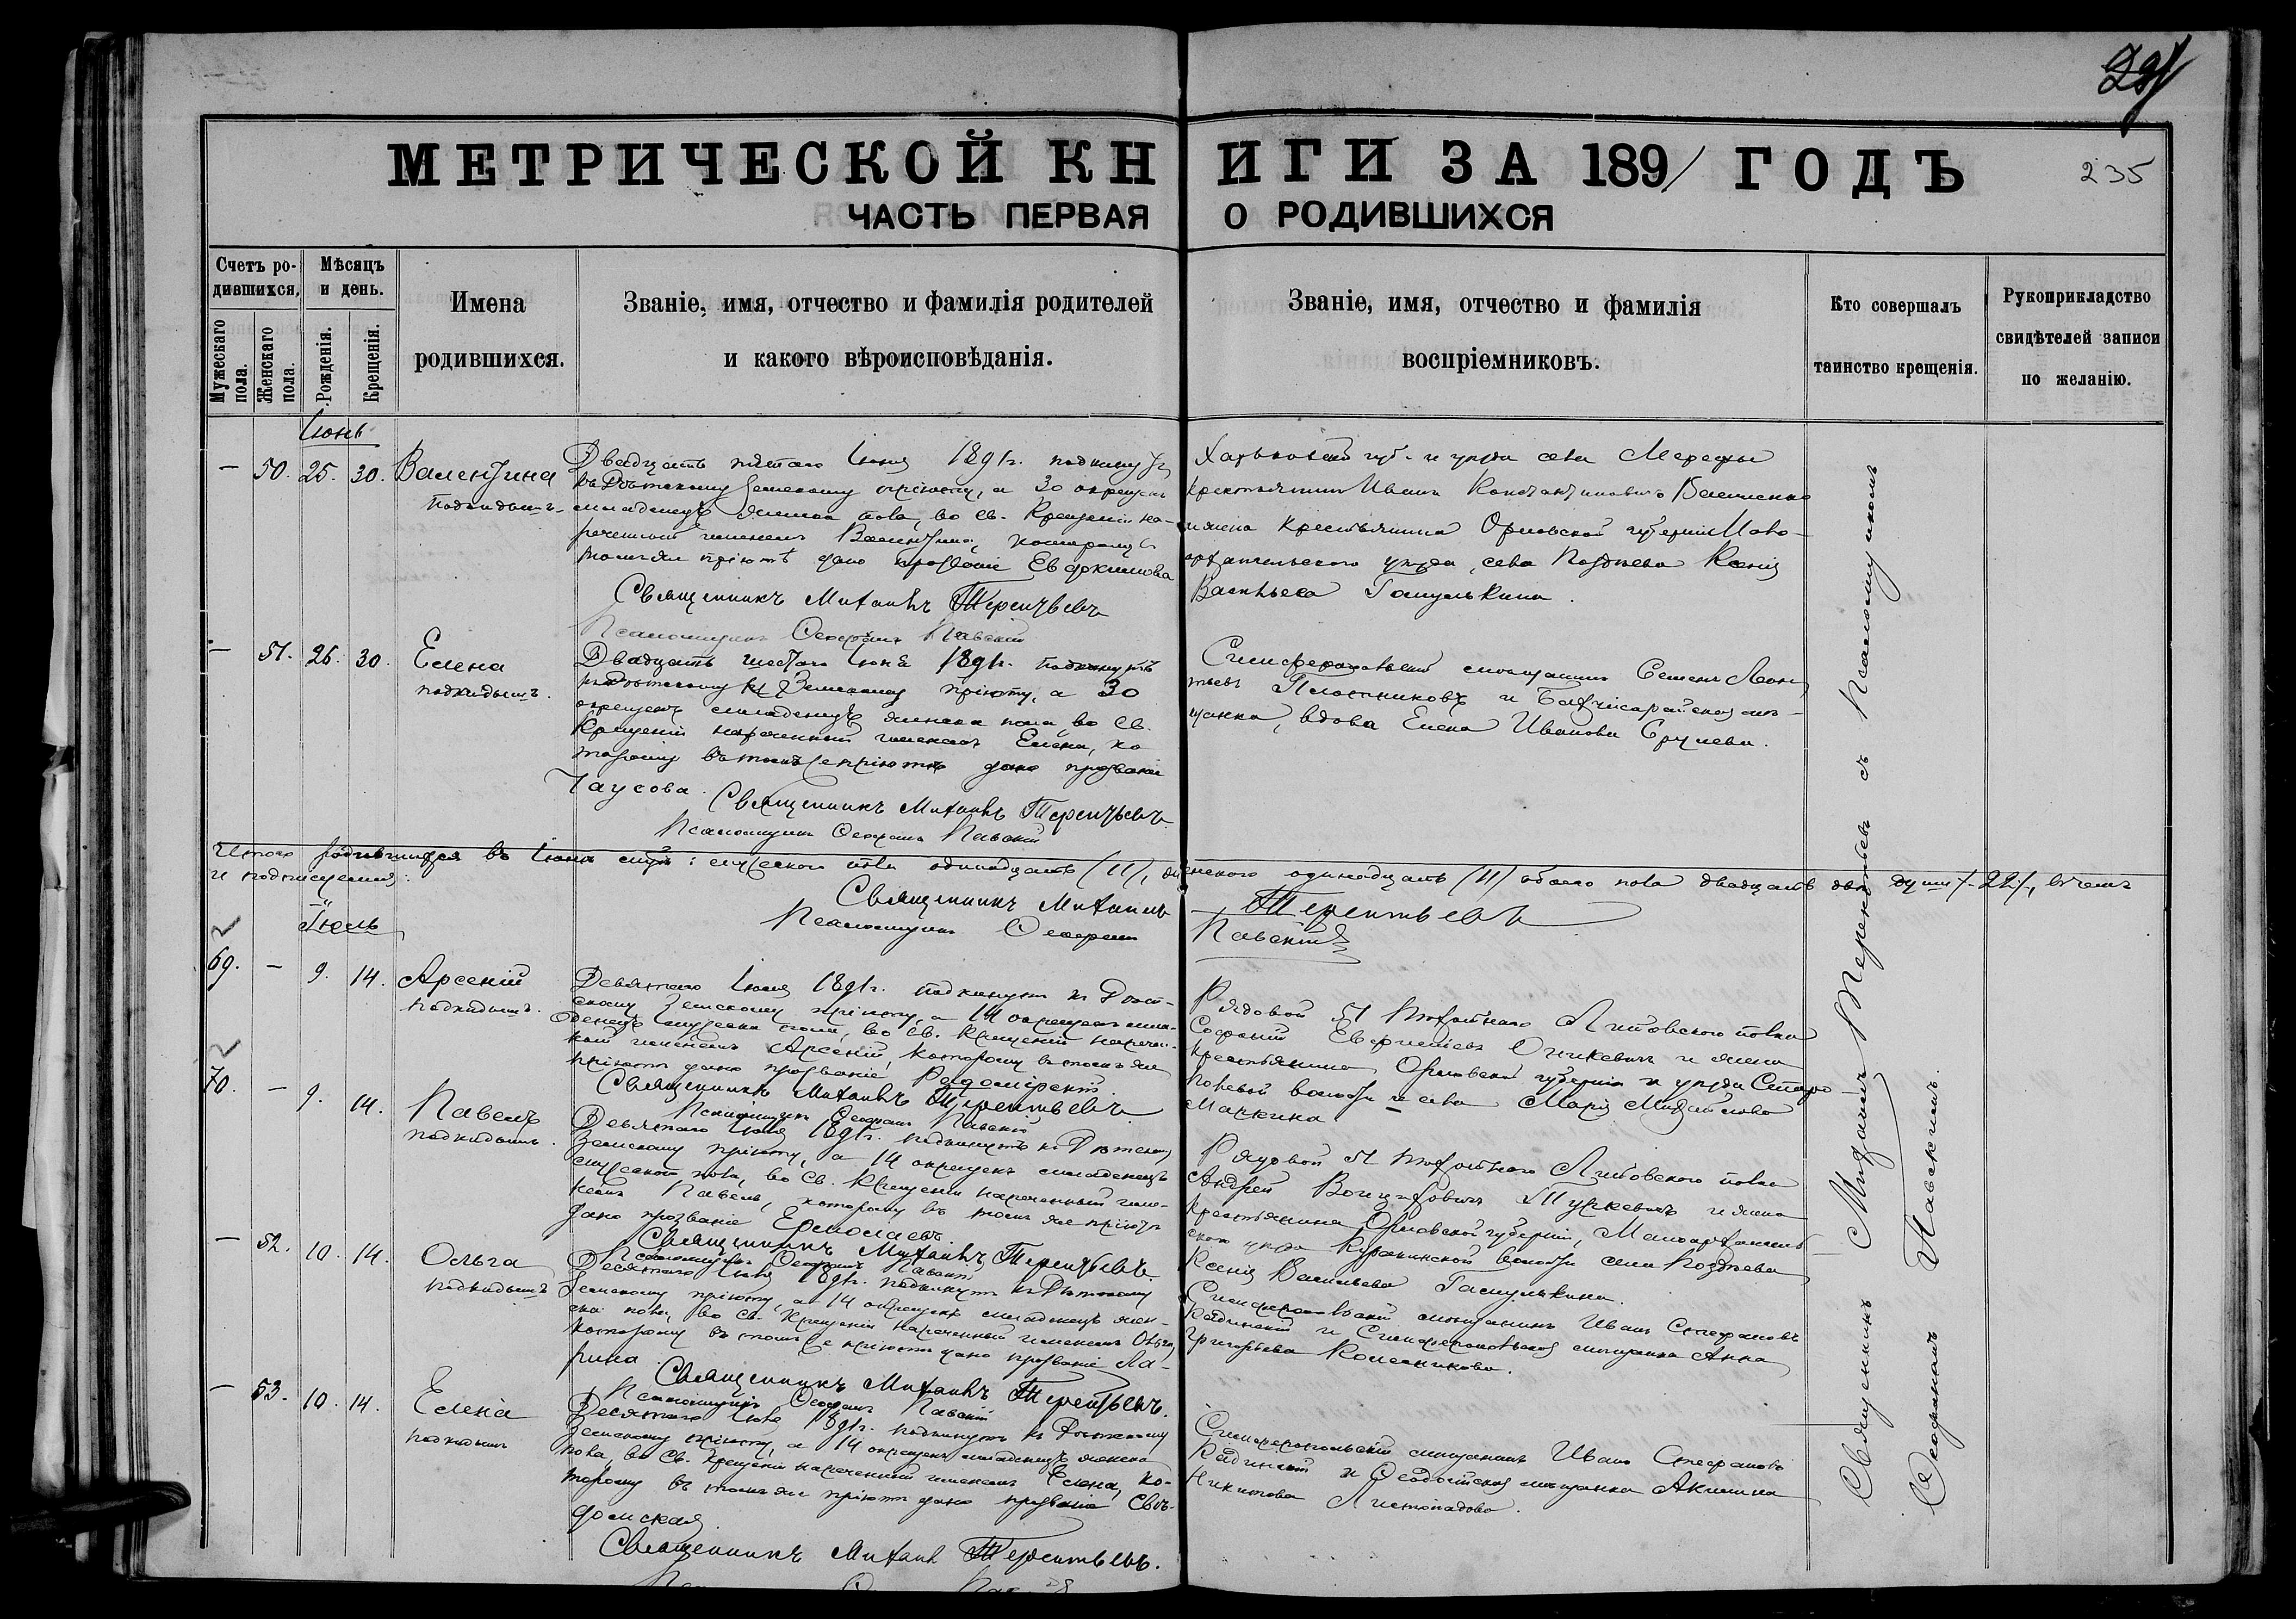 291
МЕТРИЧЕСКОЙ КНИГИ ЗА 1891 ГОДЪ
235
ЧАСТЬ ПЕРВАЯ О РОДИВШИХСЯ
Счетъ родившихся.
Мужескаго пола.
Женскаго пола.
Мѣсяцъ и день.
Рожденія.
Крещенія.
Имена
родившихся.
Званіе, имя, отчество и фамилія родителей
и какого вѣроисповѣданія.
Званіе, имя, отчество и фамилія
воспріемниковъ.
Кто совершалъ
таинство крещенія.
Рукоприкладство
свидѣтелей записи
по желанію.
Іюнь
— 50. 25. 30. Валентина
подкидышъ
Двадцать пятаго Іюня 1891 г. подкинутъ
къ Дѣтскому Земскому пріюту, а 30 окрещенъ
младенецъ женска пола, во св. Крещеніи на-
реченный именемъ Валентина, которому въ
томъ же пріютѣ дано прозваніе Евдокимова
Священникъ Михаилъ Терентьевъ
Псаломщикъ Ѳеофанъ Павскій
Харьковской губ. и уѣзда села Мерефы
крестьянинъ Иванъ Константиновичъ
и жена крестьянина Орловской губерніи Мало-
архангельскаго уѣзда, села Позднева Ксенія
Васильева Гамулькина.
— 51. 26. 30. Елена
подкидышъ.
Двадцать шестаго Іюня 1891 г. подкинутъ
къ Дѣтскому Земскому пріюту, а 30
окрещенъ младенецъ женска пола, во св.
Крещеніи нареченный именемъ Елена, ко-
торому въ томъ же пріютѣ дано прозваніе
Чаусова.
Священникъ Михаилъ Терентьевъ.
Псаломщикъ Ѳеофанъ Павскій
Симферопольскій мѣщанинъ Семенъ Леон-
тьевъ Плотниковъ и Бахчисарайская мѣ-
щанка, вдова Елена Иванова
Итого родившихся въ Іюнѣ мѣс.: мужескаго пола одинадцать (11), женскаго одинадцать (11) обоего пола двадцать двѣ души /22/, въ чемъ
и подписуемся:
Священникъ Михаилъ Терентьевъ
Псаломщикъ Ѳеофанъ Павскій
Іюль
69. — 9. 14. Арсеній
подкидышъ.
Девятаго Іюля 1891 г. подкинутъ къ Дѣт-
скому Земскому пріюту, а 14 окрещенъ мла-
денецъ мужеска пола, во св. Крещеніи наречен-
ный именемъ Арсеній, которому въ томъ же
пріютѣ дано прозваніе
Священникъ Михаилъ Терентьевъ
Псаломщикъ Ѳеофанъ Павскій
Рядовой 51 пѣхотнаго Литовскаго полка
Софроній и жена
крестьянина Орловской губерніи и уѣзда
волости и села Марія Михайлова
70. — 9. 14. Павелъ
подкидышъ.
Девятаго Іюля 1891 г. подкинутъ къ Дѣтскому
Земскому пріюту, а 14 окрещенъ младенецъ
мужеской пола, во св. Крещеніи нареченный име-
немъ Павелъ, которому въ томъ же пріютѣ
дано прозваніе Ермолаевъ.
Священникъ Михаилъ Терентьевъ.
Псаломщикъ Ѳеофанъ Павскій
Рядовой 51 пѣхотнаго Литовскаго полка
Андрей и жена
крестьянина Орловской губерніи, Малоархангель-
скаго уѣзда Куракинской волости села Позднева
Ксенія Васильева Гамулькина.
— 52. 10. 14. Ольга
подкидышъ
Десятаго Іюля 1891 г. подкинутъ къ Дѣтскому
Земскому пріюту, а 14 окрещенъ младенецъ жен-
ска пола, во св. Крещеніи нареченный именемъ Ольга,
которому въ томъ же пріютѣ дано прозваніе Ла-
рина.
Священникъ Михаилъ Терентьевъ.
Псаломщикъ Ѳеофанъ Павскій
Симферопольскій мѣщанинъ Иванъ Стефановъ
Кадинскій и Симферопольская мѣщанка Анна
Григорьева Колесникова.
— 53. 10. 14. Елена
подкидышъ
Десятаго Іюля 1891 г. подкинутъ къ Дѣтскому
Земскому пріюту, а 14 окрещенъ младенецъ женска
пола, во св. Крещеніи нареченный именемъ Елена, ко-
торому въ томъ же пріютѣ дано прозваніе
Священникъ Михаилъ Терентьевъ.
Симферопольскій мѣщанинъ Иванъ Стефановъ
Кадинскій и Ѳеодосійская мѣщанка Акилина
Никитова Листопадова.
Священникъ Михаилъ Терентьевъ съ Псаломщикомъ
Ѳеофаномъ Павскимъ.